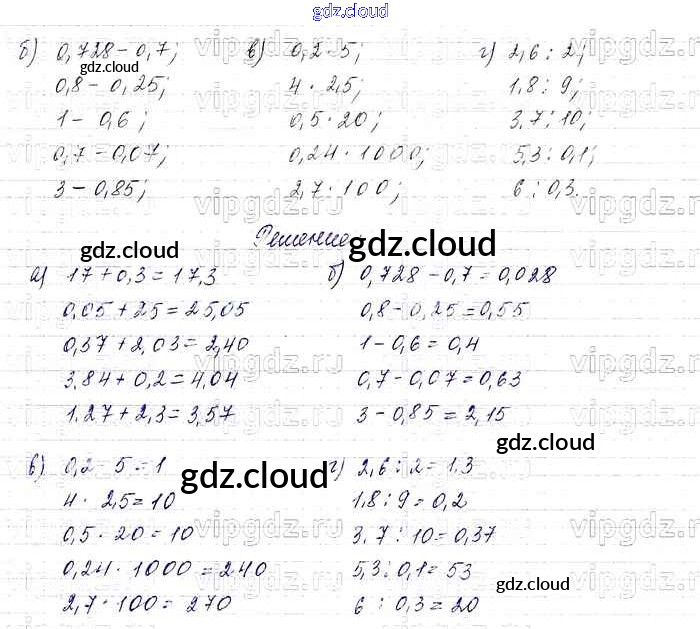 gdz.cloud
б) 0,728 - 0,7; в) 0,2 · 5; г) 2,6 : 2;
gdz.cloud
0,8 - 0,25; 4 · 2,5; 1,8 : 9;
1 - 0,6; 0,5 · 20; 3,7 : 10;
0,7 - 0,07; 0,24 · 1000; 5,3 : 0,1;
3 - 0,85; 2,7 · 100; 6 : 0,3.
Решение:
gdz.cloud gdz.cloud
а) 17 + 0,3 = 17,3 б) 0,728 - 0,7 = 0,028
0,05 + 25 = 25,05 0,8 - 0,25 = 0,55
0,37 + 2,03 = 2,40 1 - 0,6 = 0,4
3,84 + 0,2 = 4,04 0,7 - 0,07 = 0,63
1,27 + 2,3 = 3,57 3 - 0,85 = 2,15
gdz.cloud
в) 0,2 · 5 = 1 г) 2,6 : 2 = 1,3
gdz.cloud
4 · 2,5 = 10 1,8 : 9 = 0,2
0,5 · 20 = 10 3,7 : 10 = 0,37
0,24 · 1000 = 240 5,3 : 0,1 = 53
gdz.cloud
2,7 · 100 = 270 6 : 0,3 = 20
vipgdz.ru